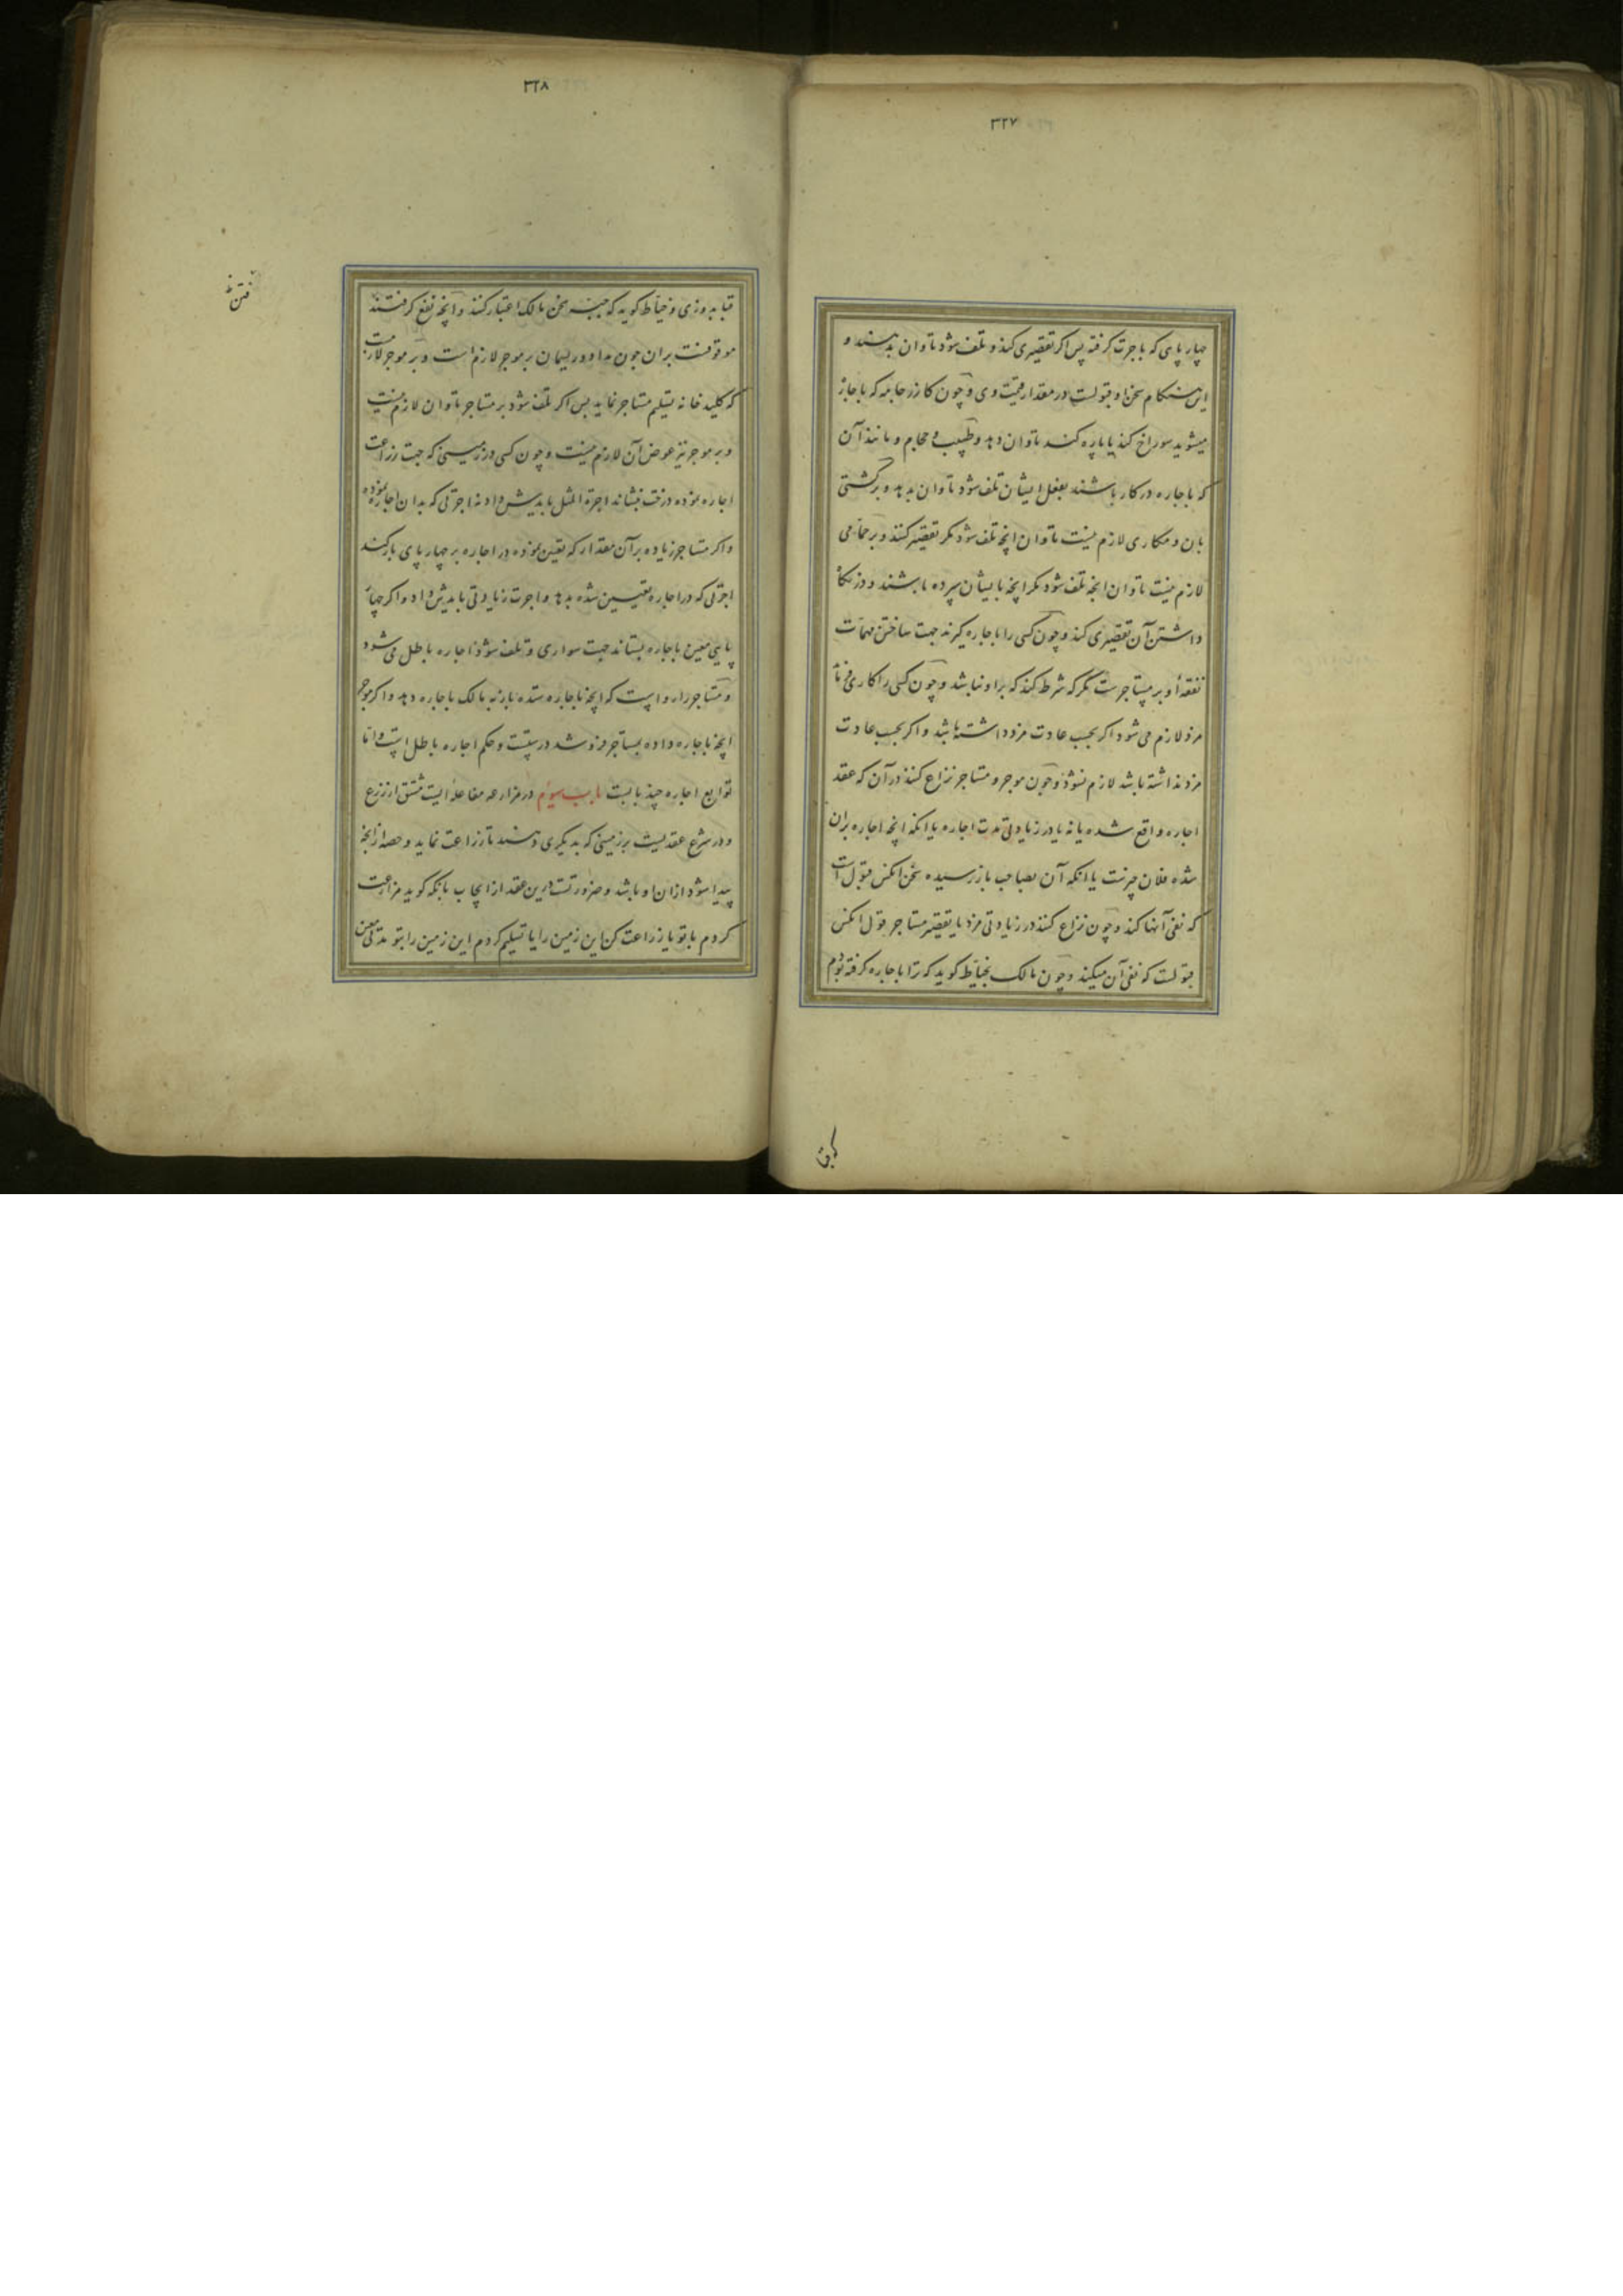 ۳۲۷
چهار پای که باجرت گرفته پس اگر تقصیری کند و تلف شود تاوان بدهند و
این هنگام سخن او قبولست در مقدار قیمت وی و چون کازر جامه که باجاره
میشوید سوراخ کند یا پاره کند تاوان دهد و طبیب و حجام و مانند آن
که باجاره در کار باشند بفعل ایشان تلف شود تاوان بدهد و بر کشتی
بان و مکاری لازم نیست تاوان انچه تلف شود مکر تقصیر کنند و بر حمامی
لازم نیست تاوان انچه تلف شود مکر انچه بایشان سپرده باشند و در نکاه
داشتن آن تقصیری کند و چون کسی را باجاره کیرند جهت ساختن مهمات
نفقهٔ او بر مستاجرست مکر که شرط کند که بر او نباشد و چون کسی را کاری
مزد لازم می شود اکر بحسب عادت مزد داشته باشد و اکر بحسب عادت
مزد نداشته باشد لازم نشود و چون موجر و مستاجر نزاع کنند در آن که عقد
اجاره واقع شده یا نه یا در زیادتی مدت اجاره یا انکه انچه اجاره بران
شده فلان چیزست یا انکه آن بصاحب باز رسیده سخن انکس قبول است
که نفی آنها کند و چون نزاع کنند در زیادتی مزد یا تقصیر مستاجر قول انکس
قبولست که نفی آن میکند و چون مالک بخیاط کوید که ترا باجاره کرفته بودم
۳۲۸
قبا بدوزی و خیاط کوید که جبه سخن مالک اعتبار کنند و انچه نفع کرفتن
موقوفست بران چون مداد و ریسمان بر موجر لازم است و بر موجر لازمست
که کلید خانه تسلیم مستاجر نماید پس اکر تلف شود بر مستاجر تاوان لازم نیست
و بر موجر نیز عوض آن لازم نیست و چون کسی در زمینی که جهت زراعت
اجاره نموده درخت نشاند اجرة المثل بایدش داد نه اجرتی که بدان اجاره نموده
واکر مستاجر زیاده بر آن مقدار که تعین نموده در اجاره بر چهار پای بار کند
اجرتی که در اجاره تعیین شده بدهد و اجرت زیادتی بایدش داد و اکر چهار
پایی معین باجاره بستاند جهت سواری و تلف شود اجاره باطل می شود
و مستاجر را رواست که انچه باجاره ستده باز به مالک باجاره دهد و اکر موجر
انچه باجاره داده بمستاجر فروشد درستست و حکم اجاره باطل است و اما
توابع اجاره چند بابست باب سوم در مزارعه مفاعله ایست مشتق از زرع
و در شرع عقدیست بر زمینی که بدیکری دهند تا زراعت نماید و حصه از انچه
پیدا شود از ان او باشد و ضرورتست درین عقد از ایجاب بانکه کوید مزارعت
کردم با تو یا زراعت کن این زمین را یا تسلیم کردم این زمین را بتو مدتی معین